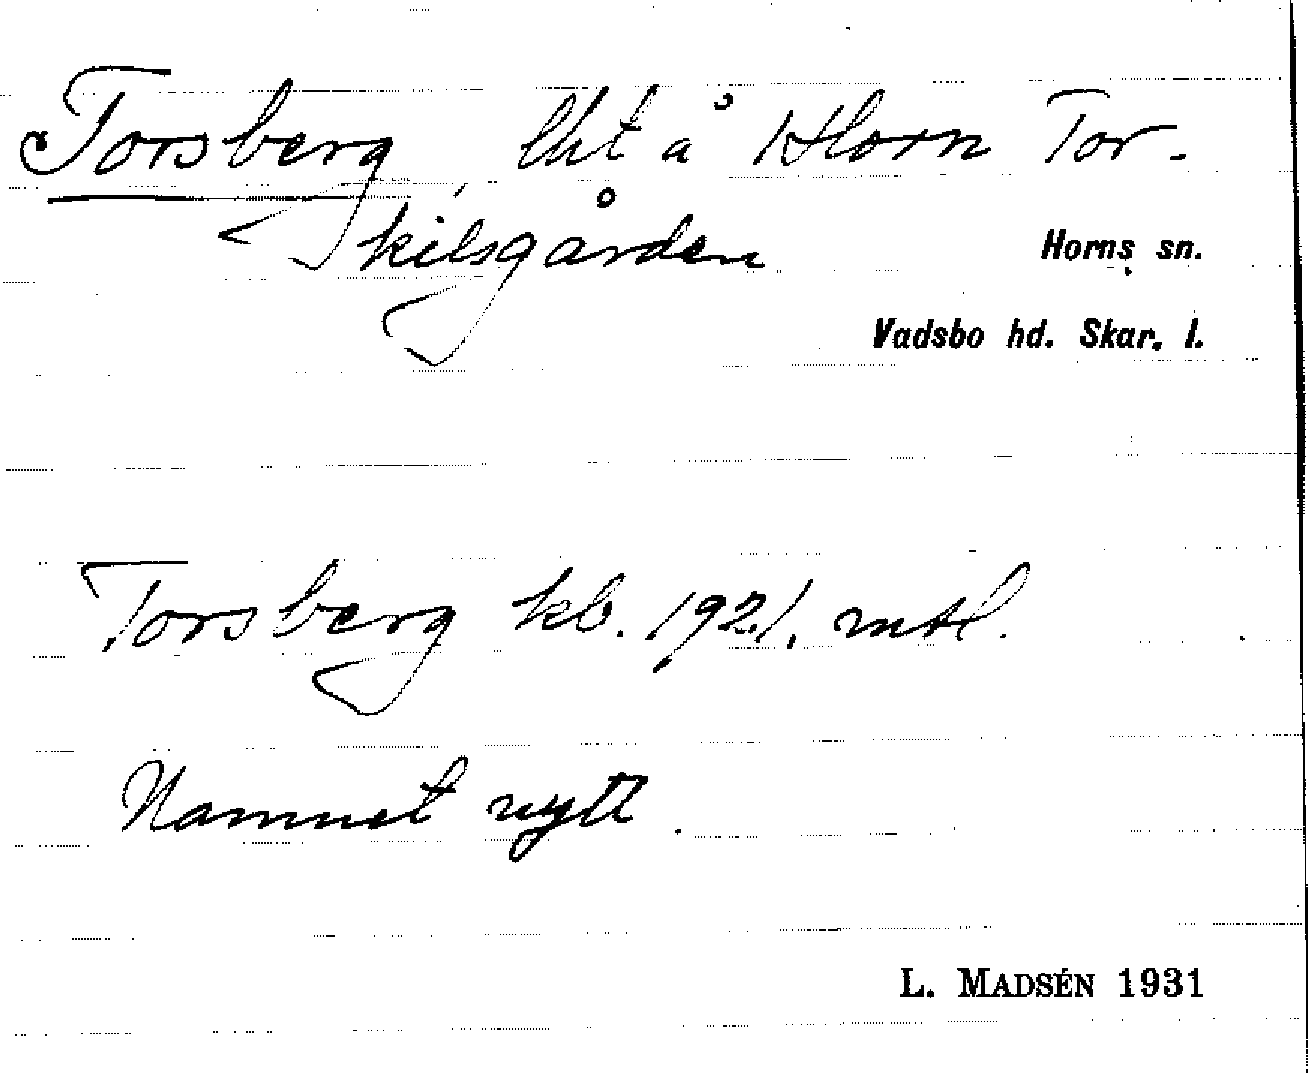 Torsberg, lht å Horn Tor-
kilsgården
Horns sn.
Vadsbo hd. Skar. l.
Torsberg kb. 1921, mtl.
Namnet nytt.
L. MADSÉN 1931